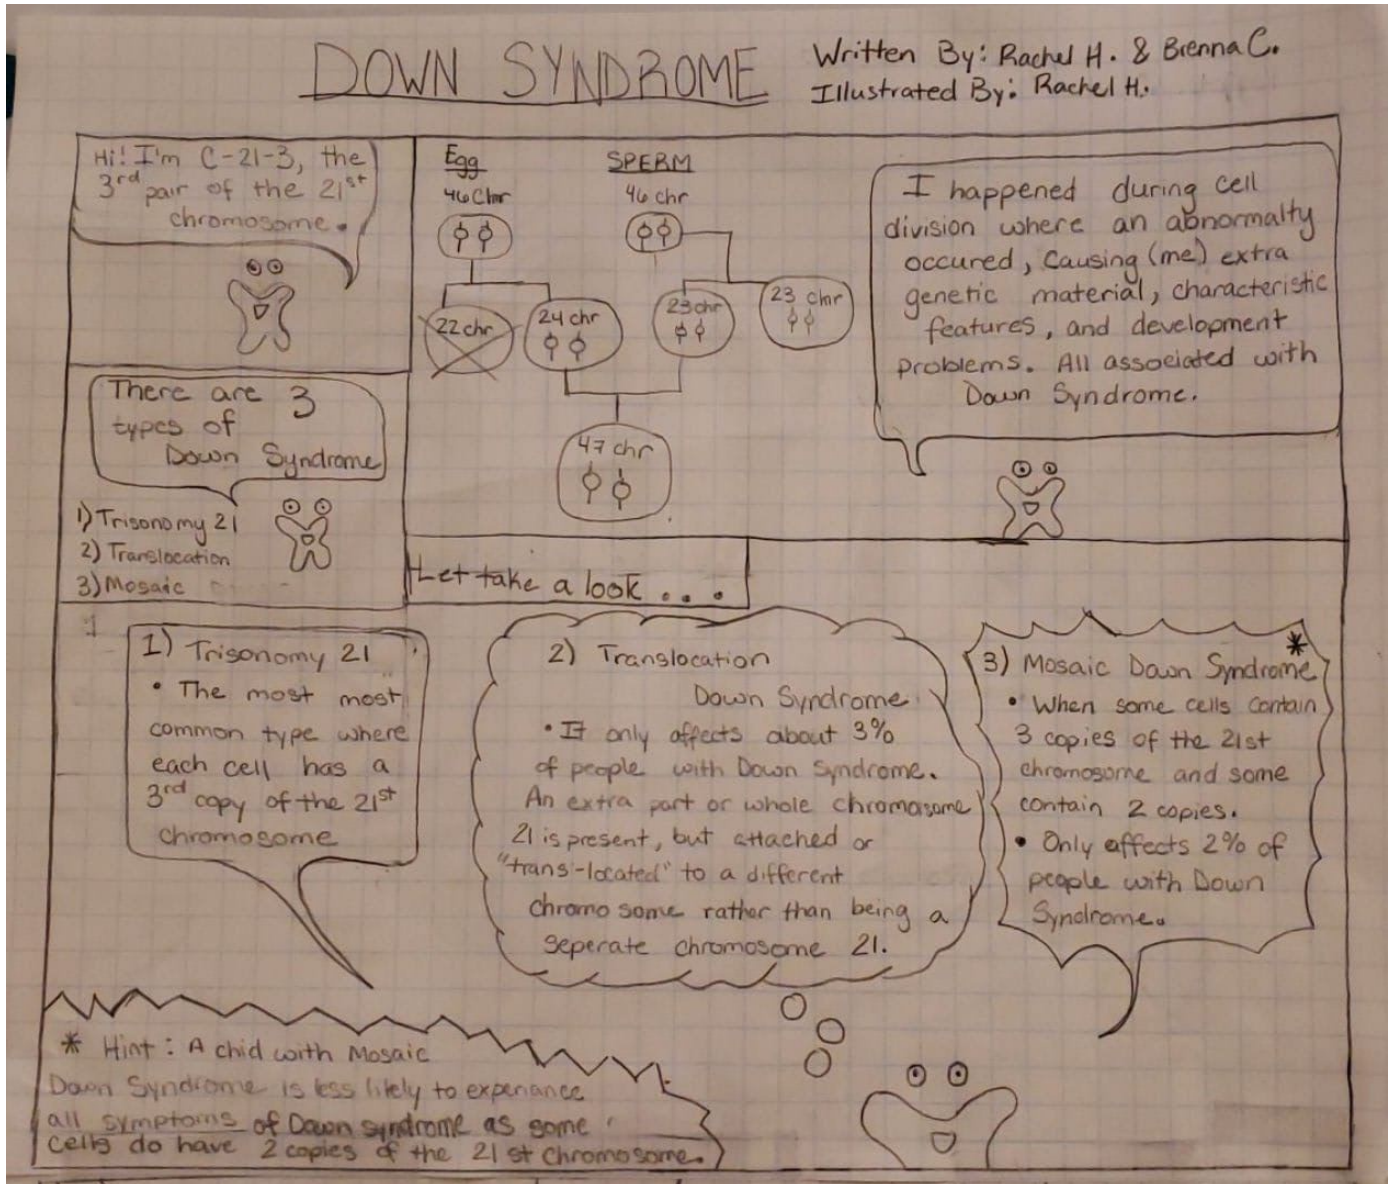 DOWN SYNDROME
Written By: Rachel H. & Brenna C.
Illustrated By: Rachel H.
Hi! I'm C-21-3, the
3rd pair of the 21st
chromosome.
Egg
46 Chr
SPERM
46 chr
22 chr
24 chr
23 chr
23 chr
47 chr
I happened during cell
division where an abnormalty
occured, causing (me) extra
genetic material, characteristic
features, and development
problems. All associated with
Down Syndrome.
There are 3
types of
Down Syndrome
1) Trisonomy 21
2) Translocation
3) Mosaic
Let take a look ...
1) Trisonomy 21
• The most most
common type where
each cell has a
3rd copy of the 21st
chromosome
2) Translocation
Down Syndrome
• It only affects about 3%
of people with Down Syndrome.
An extra part or whole chromosome
21 is present, but attached or
"trans-located" to a different
chromosome rather than being a
seperate chromosome 21.
3) Mosaic Down Syndrome *
• When some cells contain
3 copies of the 21st
chromosome and some
contain 2 copies.
• Only affects 2% of
people with Down
Syndrome.
* Hint: A chid with Mosaic
Down Syndrome is less likely to experiance
all symptoms of Down syndrome as some
cells do have 2 copies of the 21st chromosome.